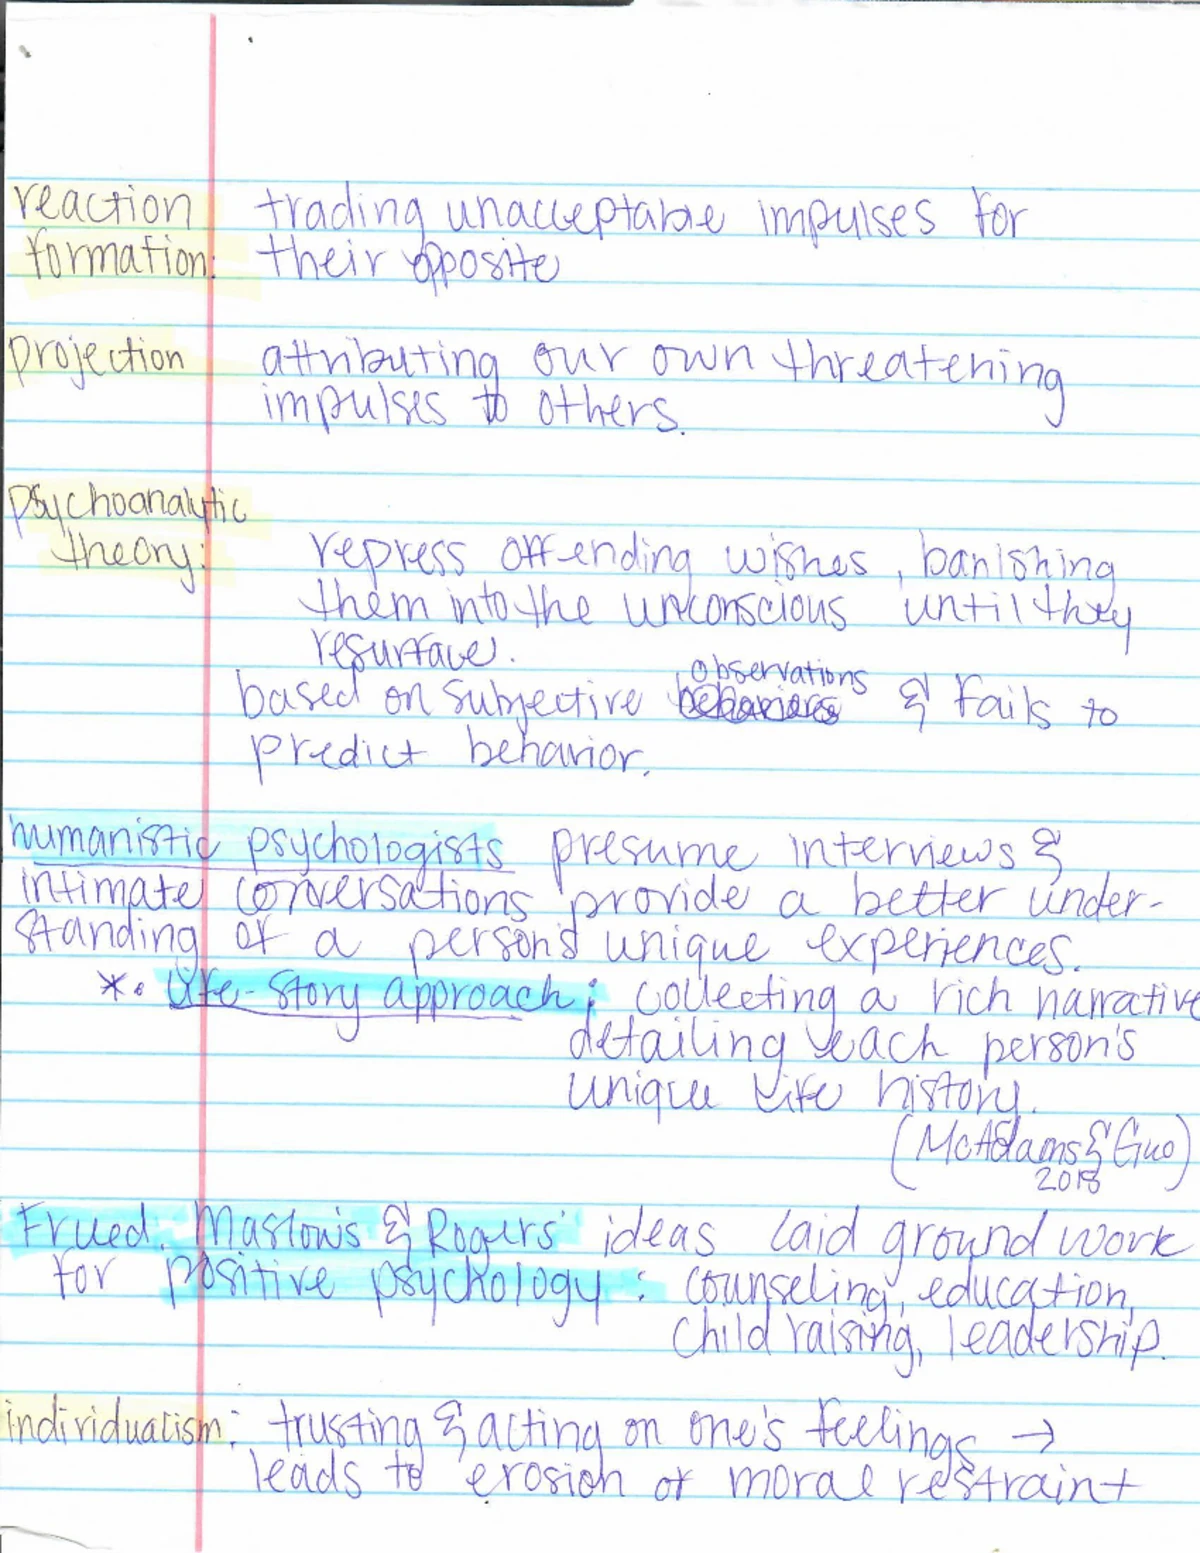 reaction trading unacceptable impulses for
formation: their opposite
projection attributing our own threatening
impulses to others.
psychoanalytic
theory: repress offending wishes, banishing
them into the unconscious until they
resurface.
observations
based on subjective behaviors & fails to
predict behavior.
humanistic psychologists presume interviews &
intimate conversations provide a better under-
standing of a person's unique experiences.
*• Life-Story approach; collecting a rich narrative
detailing each person's
unique life history.
(McAdams & Guo)
2018
Frued, Maslow's & Rogers' ideas laid ground work
for positive psychology: counseling, education,
child raising, leadership.
individualism: trusting & acting on one's feelings →
leads to erosion of moral restraint